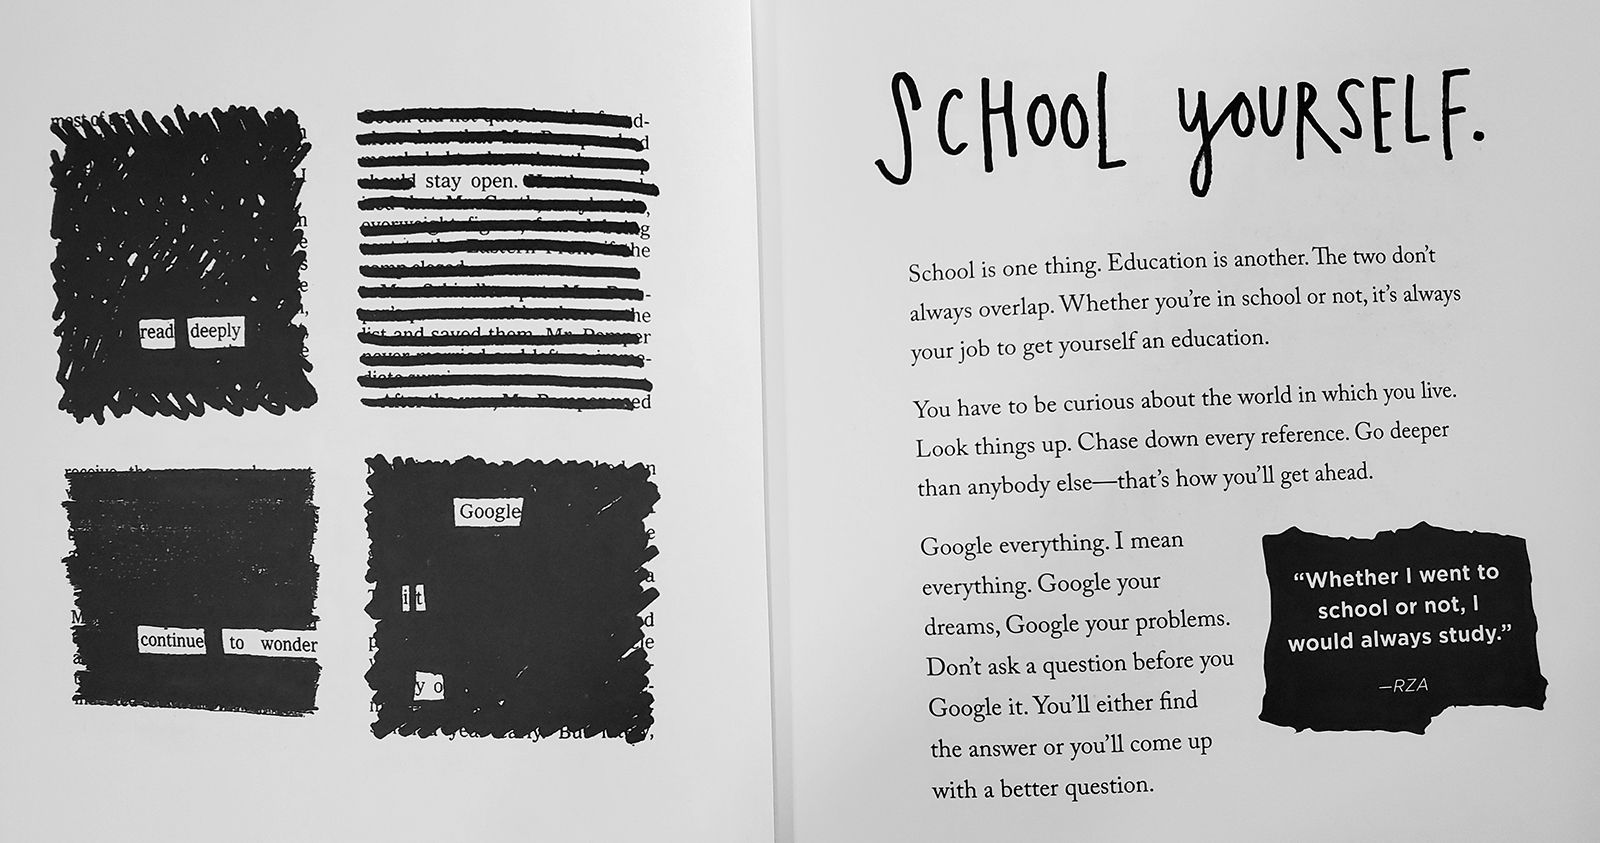 most of
read deeply
stay open.
continue to wonder
Google
i t
y o
SCHOOL YOURSELF.
School is one thing. Education is another. The two don't
always overlap. Whether you're in school or not, it's always
your job to get yourself an education.
You have to be curious about the world in which you live.
Look things up. Chase down every reference. Go deeper
than anybody else—that's how you'll get ahead.
Google everything. I mean
everything. Google your
dreams, Google your problems.
Don't ask a question before you
Google it. You'll either find
the answer or you'll come up
with a better question.
“Whether I went to
school or not, I
would always study.”
—RZA